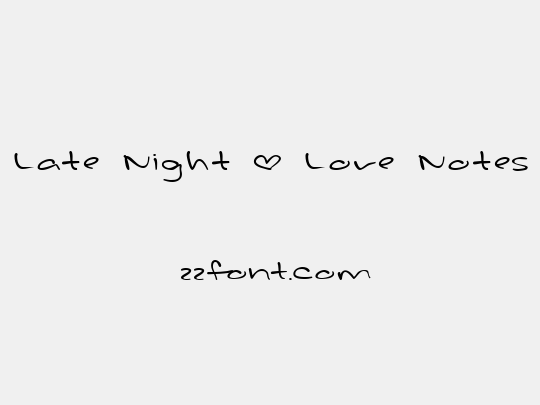 Late Night ♡ Love Notes
22font.com